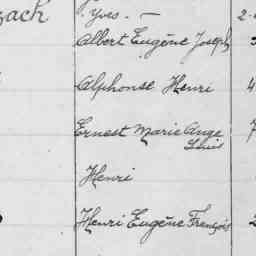 Yves. —
Albert Eugène Joseph
Alphonse Henri 4
Ernest Marie Ange 7
Louis
Henri
Henri Eugène François 2